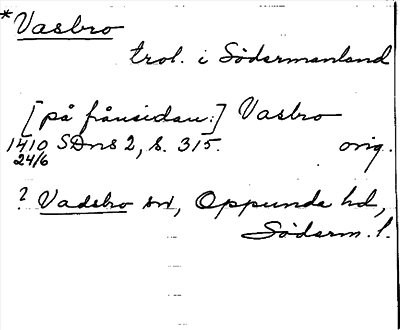 *Vasbro
trol. i Södermanland
[på frånsidan:] Vasbro
1410 SDns 2, s. 315. orig.
24/6
? Vadsbro sn, Oppunda hd,
Söderm. l.